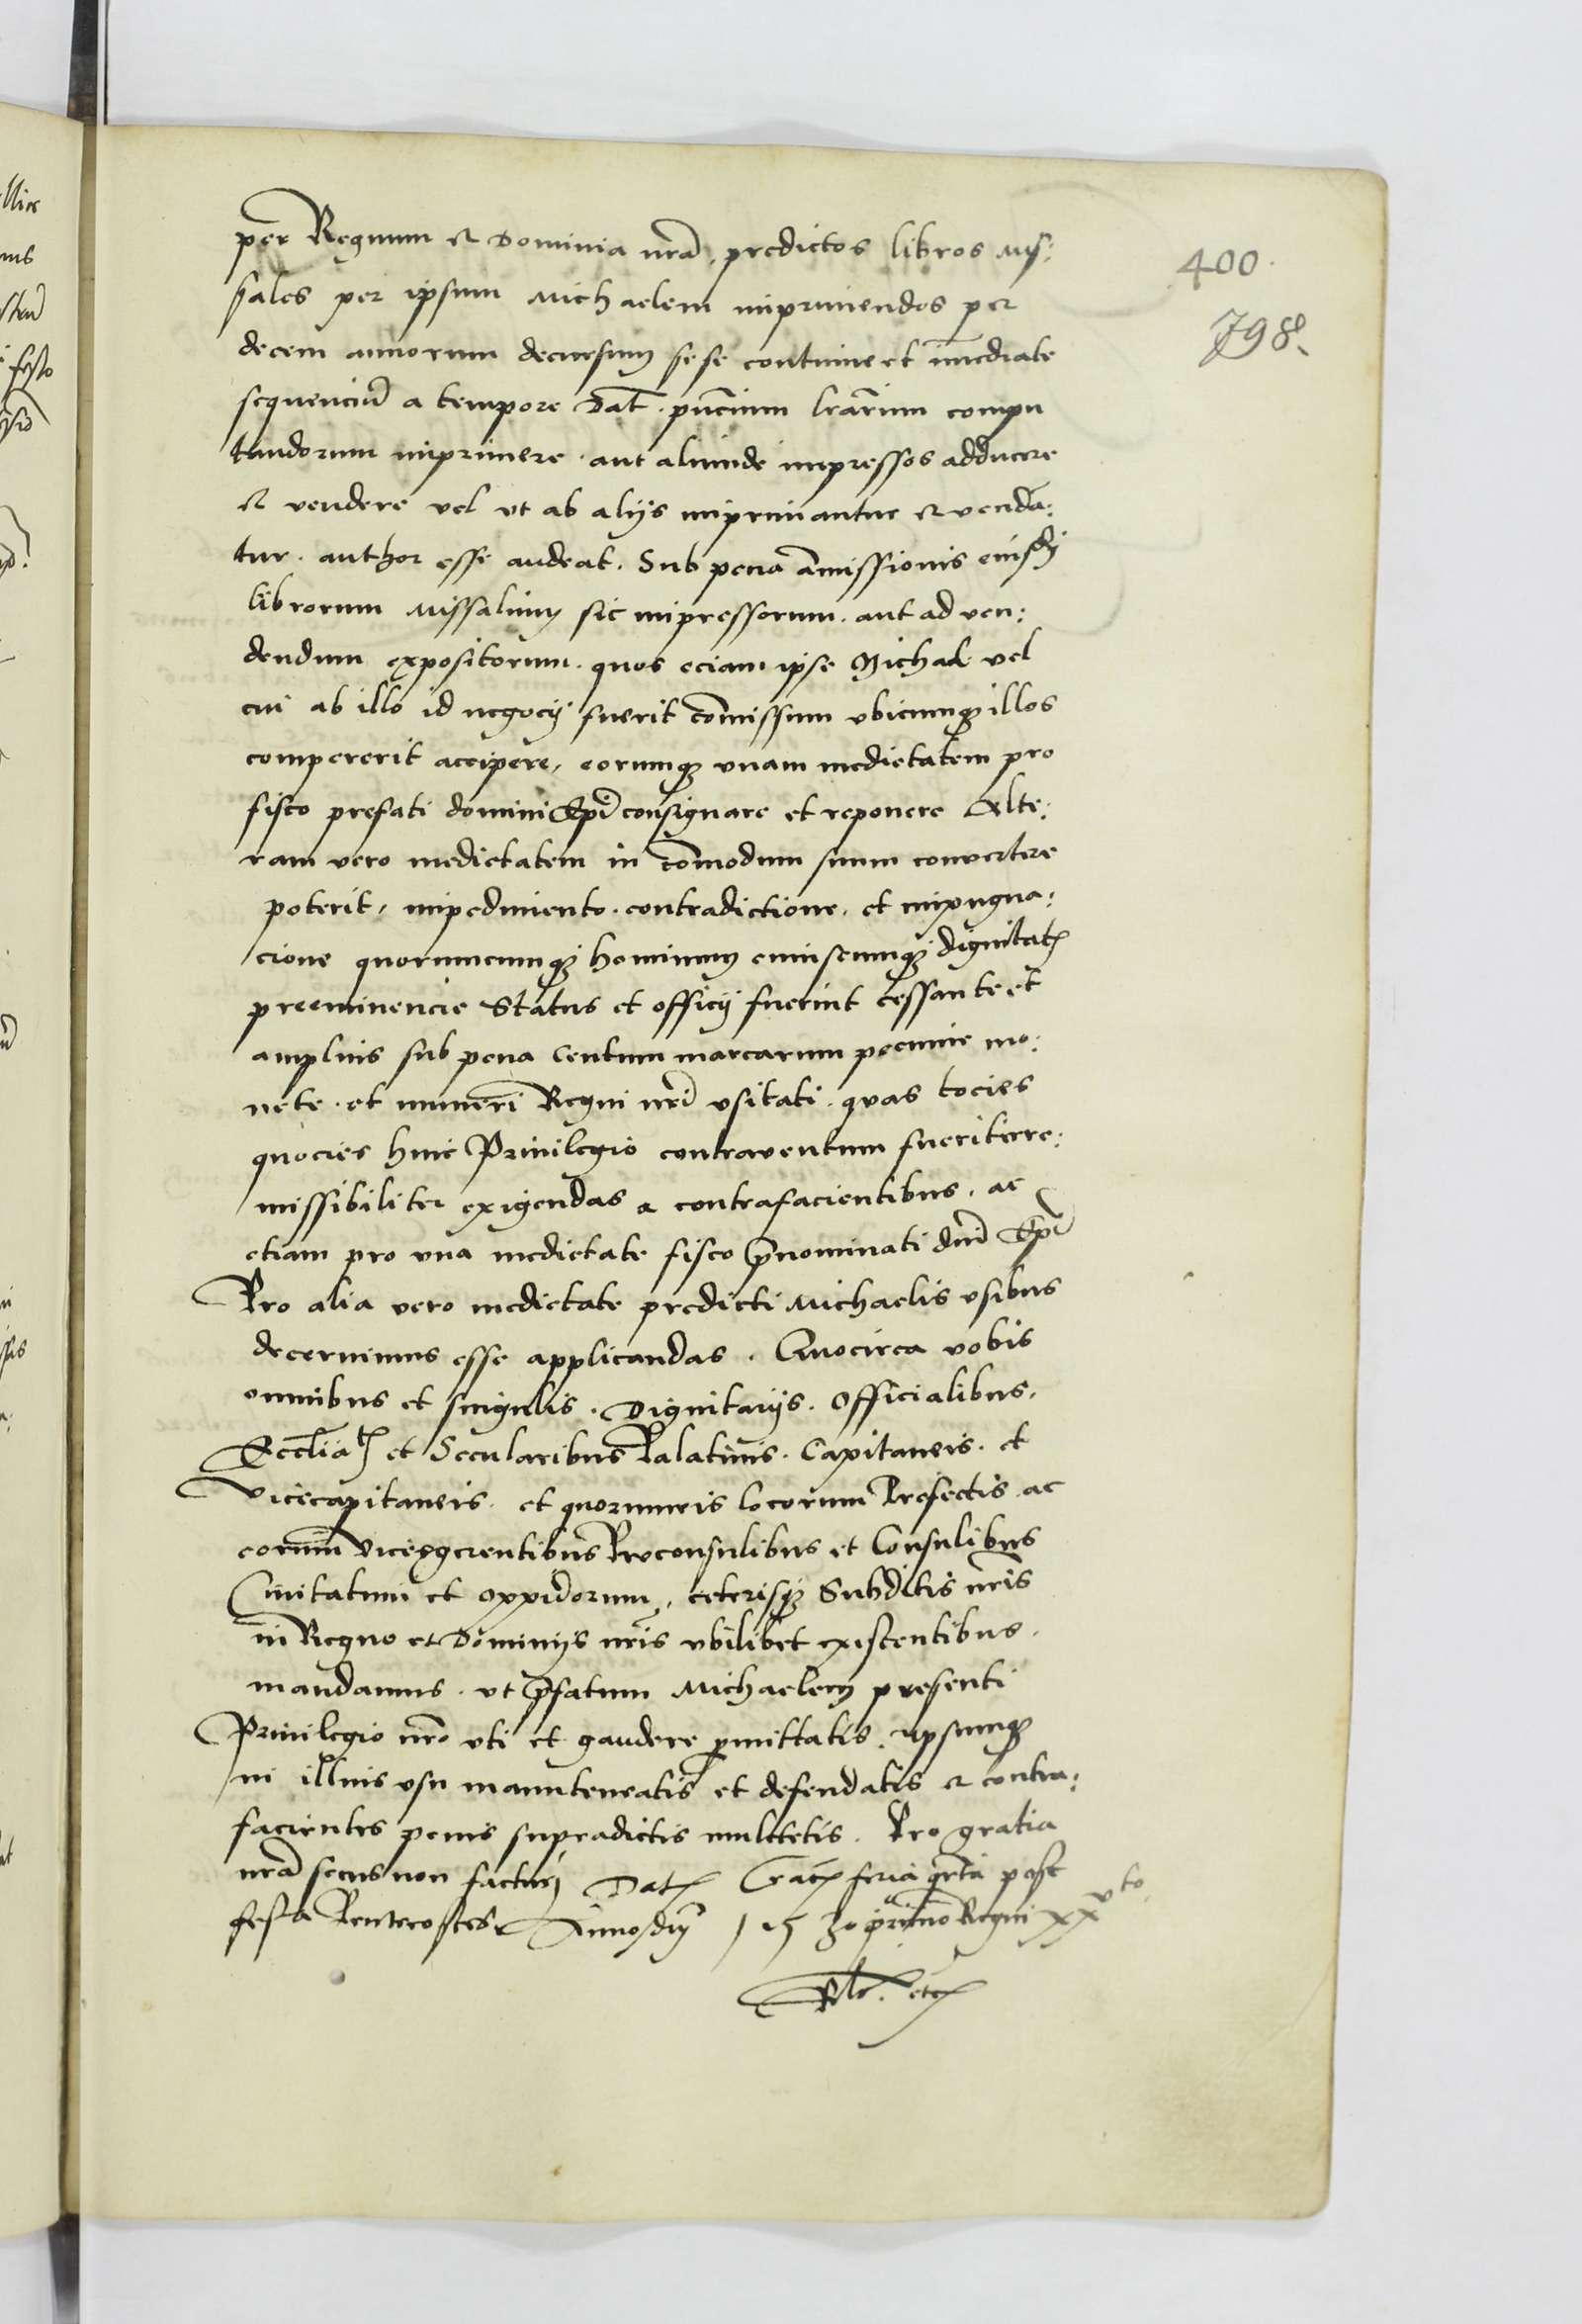 per Regnum et Dominia nra, predictos libros Mis:
sales per ipsum Michaelem imprimendos per
decem annorum decursum sese continue et immediate
sequenciu a tempore Dat. pncium lrarum compu
tandorum imprimere. aut aliunde impressos adducere
et vendere vel ut ab alijs imprimantur et venda:
tur. author esse audeat. Sub pena amissionis eiusdem
librorum Missalium sic impressorum. aut ad ven:
dendum expositorum. quos eciam ipse Michael vel
cui ab illo id negocij fuerit comissum ubicumque illos
compererit accipere, eorumque unam medietatem pro
fisco prefati domini Epi consignare et reponere Alte:
ram vero medietatem in comodum suum convertere
poterit, impedimento. contradictione, et impugna:
cione quorumcumque hominum cuiuscumque dignitatis
preeminencie Status et officij fuerint cessante et
amplius sub pena Centum marcarum pecunie mo:
nete. et numeri Regni nri usitati. quas tocies
quocies huic Privilegio contraventum fuerit irre:
missibiliter exigendas a contrafacientibus. ac
etiam pro una medietate fisco pnominati dni Epi
Pro alia vero medietate predicti Michaelis usibus
decernimus esse applicandas. Quocirca vobis
omnibus et singulis. Dignitarijs. Officialibus.
Ecclia et Secularibus Palatinis. Capitaneis. et
Vicecapitaneis. et quorumvis locorum Prefectis. ac
eorum Vicesgerentibus Proconsulibus et Consulibus
Civitatum et oppidorum, ceterisque Subditis nris
in Regno et Dominijs nris ubilibet existentibus.
mandamus. ut pfatum Michaelem presenti
Privilegio nro uti et gaudere pmittatis. ipsumque
in illius usu manuteneatis et defendatis et contra:
facientes penis supradictis mulctetis. Pro gratia
nra secus non factur. Dat Crac feria qrta post
festa Penthecostes Anno dni 1530 primo Regni xxvto.
400.
798.